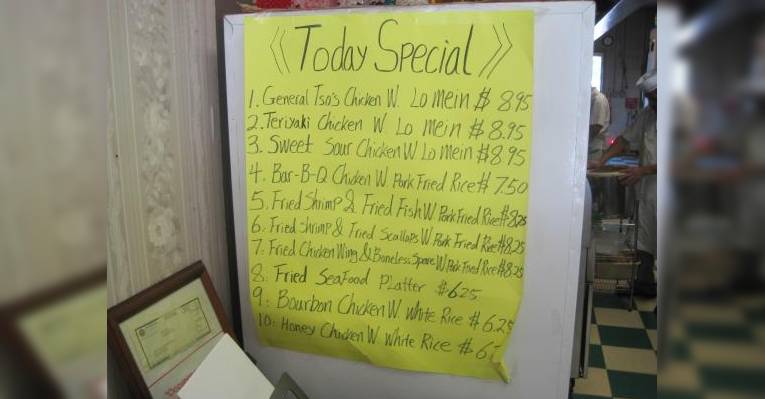 《 Today Special 》
1. General Tso's Chicken W. Lo mein $ 8.95
2. Teriyaki Chicken W Lo mein $ 8.95
3. Sweet Sour Chicken W Lo mein $8.95
4. Bar-B-Q Chicken W Pork Fried Rice $ 7.50
5. Fried Shrimp & Fried Fish W Pork Fried Rice $8.25
6. Fried Shrimp & Fried Scallops W Pork Fried Rice $8.25
7. Fried Chicken Wing & Boneless Spare W Pork Fried Rice $8.25
8. Fried SeaFood Platter $6.25
9. Bourbon Chicken W. White Rice $ 6.25
10. Honey Chicken W. White Rice $ 6.